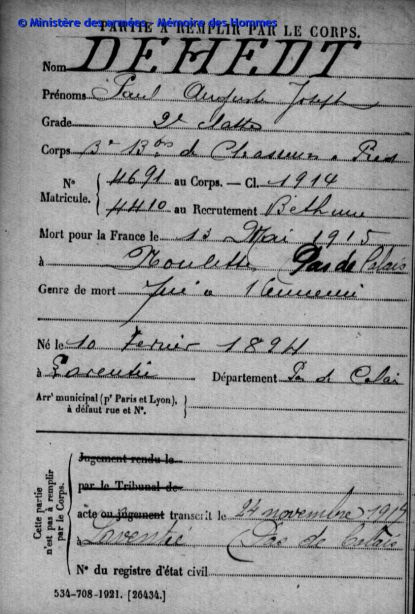 © Ministère des armées - Mémoire des Hommes
PARTIE A REMPLIR PAR LE CORPS.
Nom DEHEDT
Prénoms Paul Auguste Joseph
Grade 2e classe
Corps 3e Bon de Chasseurs à Pied
N° Matricule. { 4691 au Corps. — Cl. 1914
4410 au Recrutement Béthune
Mort pour la France le 13 Mai 1915
à Noulette Pas de Calais
Genre de mort Tué à l'ennemi
Né le 10 Février 1894
à Laventie Département Pas de Calais
Arrt municipal (pr Paris et Lyon), à défaut rue et N°. }
Cette partie n'est pas à remplir par le Corps.
Jugement rendu le
par le Tribunal de
acte ou jugement transcrit le 24 novembre 1919
à Laventie (Pas de Calais
N° du registre d'état civil
534-708-1921. [26434.]